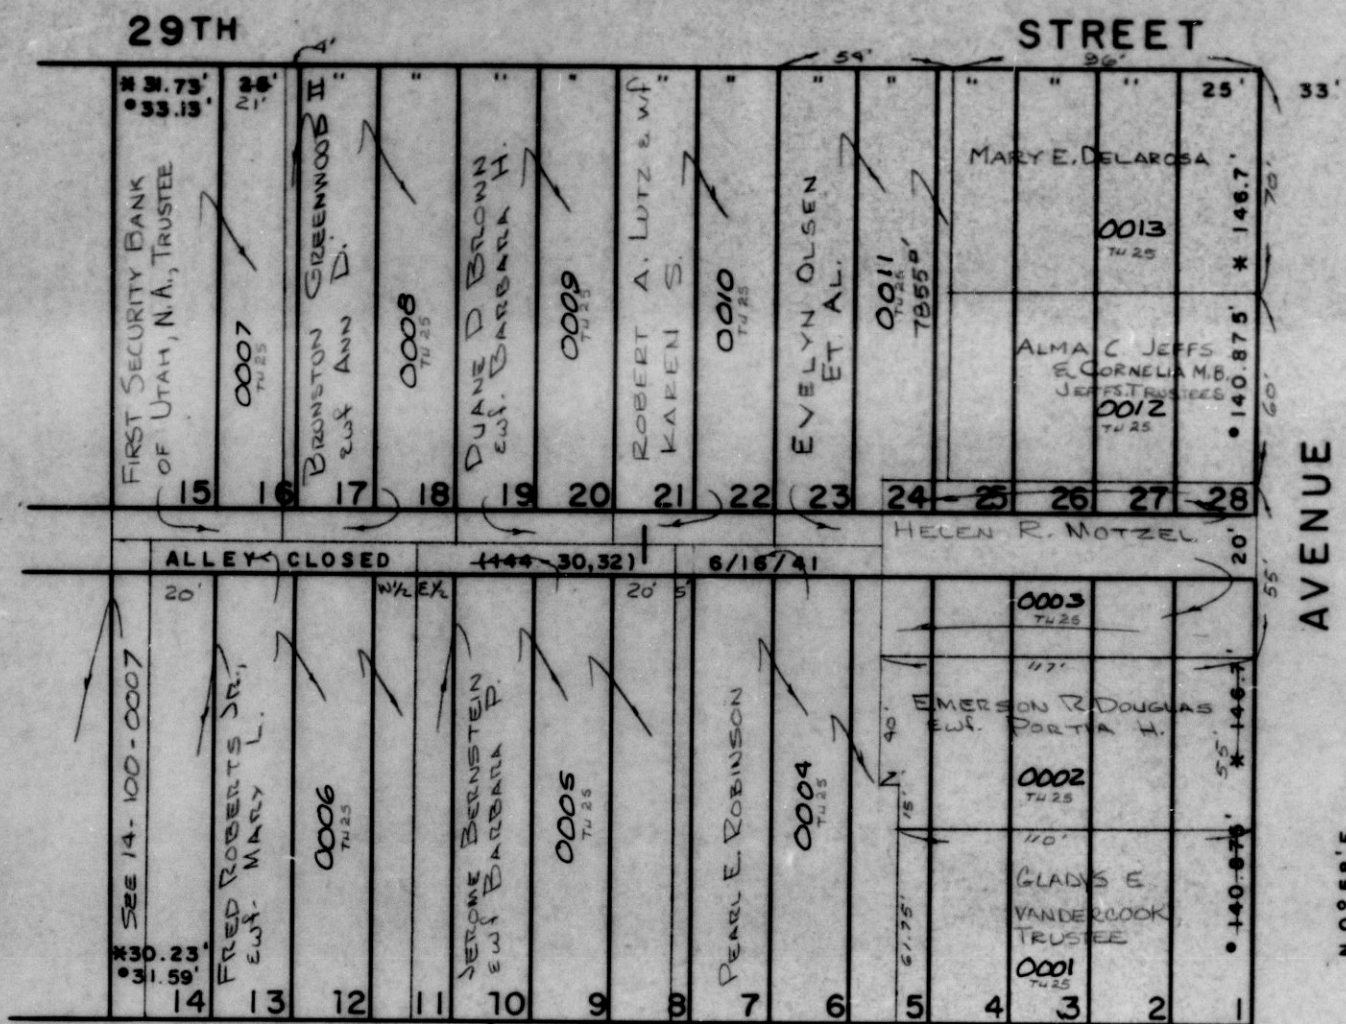 29TH STREET
4' 54' 96'
* 31.73' 25' " " " " " " " " " " 25' 33'
• 33.13' 21'
FIRST SECURITY BANK
OF UTAH, N.A., TRUSTEE
0007
TU 25
BRUNSTON GREENWOOD II
&wf ANN D.
0008
TU 25
DUANE D BROWN
&wf. BARBARA H.
0009
TU 25
ROBERT A. LUTZ & wf
KAREN S.
0010
TU 25
EVELYN OLSEN
ET. AL.
0011
TU 25
MARY E. DELAROSA
0013
TU 25
* 146.7'
70'
ALMA C. JEFFS
& CORNELIA M.B.
JEFFS. TRUSTEES
0012
TU 25
• 140.875'
60'
15 16 17 18 19 20 21 22 23 24 25 26 27 28
HELEN R. MOTZEL
20'
55'
AVENUE
ALLEY CLOSED (144-30,32) 6/16/41
20' W½ E½ 20' 5'
0003
TU 25
SEE 14-100-0007
FRED ROBERTS JR.,
&wf. MARY L.
0006
TU 25
JEROME BERNSTEIN
&wf BARBARA P.
0005
TU 25
PEARL E. ROBINSON
0004
TU 25
117'
EMERSON R. DOUGLAS
&wf. PORTIA H.
40'
55'
* 146.7'
0002
TU 25
15'
110'
GLADYS E
VANDERCOOK
TRUSTEE
61.75'
• 140.875'
0001
TU 25
*30.23'
•31.59'
14 13 12 11 10 9 8 7 6 5 4 3 2 1